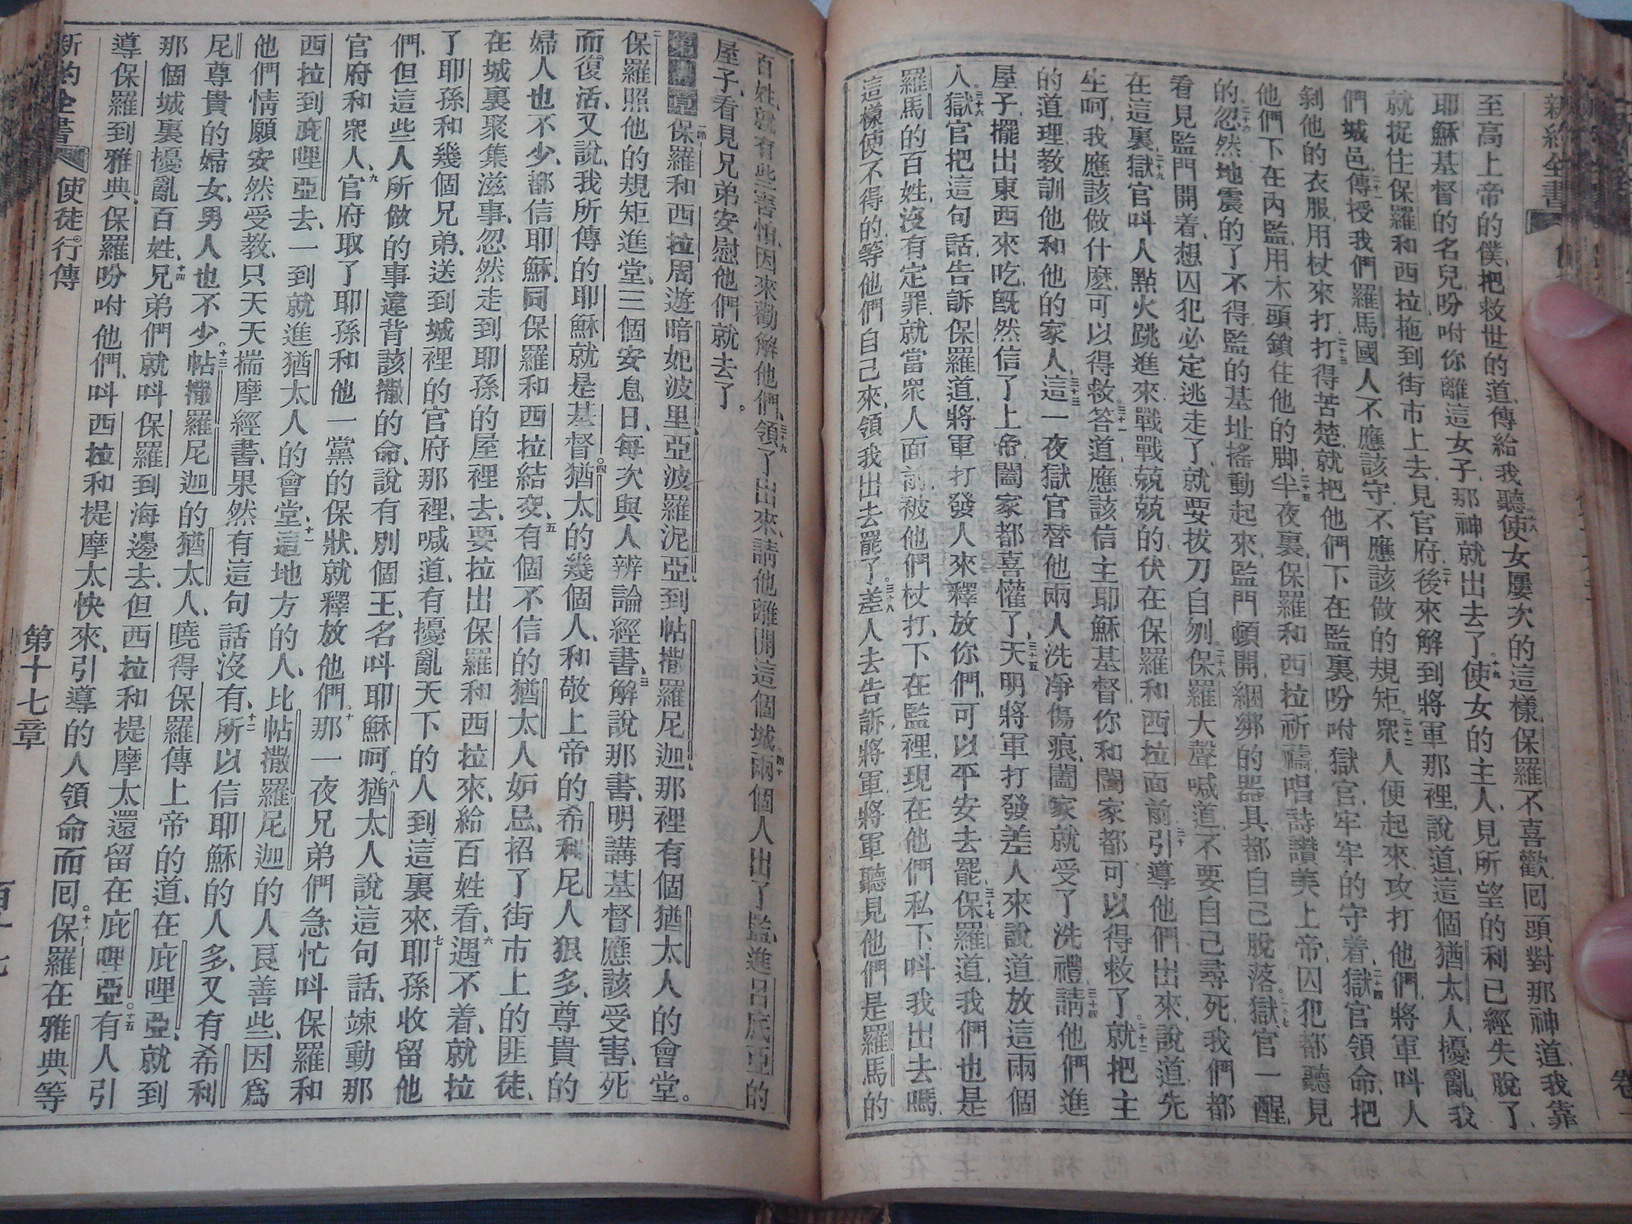 新約全書
至高上帝的僕、把救世的道、傳給我聽、使女屢次的這樣、保羅不喜歡、囘頭對那神道、我靠
耶穌基督的名兒吩咐你離這女子、那神就出去了、十九使女的主人、見所望的利已經失脫了、
就捉住保羅和西拉拖到街市上去、見官府、二十後來解到將軍那裡、說道、這個猶太人、擾亂我
們城邑、二十一傳授我們羅馬國人不應該守不應該做的規矩、二十二衆人便起來攻打他們、將軍呌人
剝他的衣服、用杖來打、二十三打得苦楚、就把他們下在監裏、吩咐獄官、牢牢的守着、二十四獄官領命、把
他們下在內監、用木頭鎖住他的脚、二十五半夜裏、保羅和西拉祈禱唱詩讚美上帝、囚犯都聽見
的、二十六忽然地震的了不得、監的基址搖動起來、監門頓開、綑綁的器具都自己脫落、二十七獄官一醒、
看見監門開着、想囚犯必定逃走了、就要拔刀自刎、二十八保羅大聲喊道、不要自己尋死、我們都
在這裏、二十九獄官呌人點火、跳進來、戰戰兢兢的伏在保羅和西拉面前、三十引導他們出來、說道、先
生呵、我應該做什麽、可以得救、三十一答道、應該信主耶穌基督、你和闔家都可以得救了、三十二就把主
的道理教訓他和他的家人、三十三這一夜獄官替他兩人洗凈傷痕、闔家就受了洗禮、三十四請他們進
屋子、擺出東西來吃、旣然信了上帝、闔家都喜懽了、三十五天明將軍打發差人來、說道、放這兩個
人、三十六獄官把這句話告訴保羅道、將軍打發人來釋放你們、可以平安去罷、三十七保羅道、我們也是
羅馬的百姓、沒有定罪、就當衆人面前、被他們杖打、下在監裡、現在他們私下呌我出去嗎、
這樣使不得的、等他們自己來領我出去罷了、三十八差人去告訴將軍、將軍聽見他們是羅馬的
百姓、就有些害怕、因來勸解他們、三十九領了出來、請他離開這個城、四十兩個人出了監、進呂底亞的
屋子、看見兄弟、安慰他們就去了。
第十七章 一保羅和西拉周遊暗妃波里亞波羅泥亞、到帖撒羅尼迦、那裡有個猶太人的會堂。
二保羅照他的規矩進堂、三個安息日、每次與人辨論經書、三解說那書、明講基督應該受害、死
而復活、又說、我所傳的耶穌、就是基督、四猶太的幾個人、和敬上帝的希利尼人狠多、尊貴的
婦人也不少、都信耶穌、同保羅和西拉結交、五有個不信的猶太人妒忌、招了街市上的匪徒、
在城裏聚集滋事、忽然走到耶孫的屋裡去、要拉出保羅和西拉來、給百姓看、六遇不着、就拉
了耶孫和幾個兄弟、送到城裡的官府那裡、喊道、有擾亂天下的人到這裏來、七耶孫收留他
們、但這些人所做的事違背該撒的命、說有別個王、名呌耶穌呵、八猶太人說這句話、竦動那
官府和衆人、九官府取了耶孫和他一黨的保狀、就釋放他們、十那一夜兄弟們急忙呌保羅和
西拉到庇哩亞去、一到就進猶太人的會堂、十一這地方的人、比帖撒羅尼迦的人良善些、因爲
他們情願安然受教、只天天揣摩經書、果然有這句話沒有、十二所以信耶穌的人多、又有希利
尼尊貴的婦女、男人也不少、十三帖撒羅尼迦的猶太人、曉得保羅傳上帝的道、在庇哩亞、就到
那個城裏擾亂百姓、十四兄弟們就呌保羅到海邊去、但西拉和提摩太還留在庇哩亞、十五有人引
導保羅到雅典、保羅吩咐他們、呌西拉和提摩太快來、引導的人領命而囘。十六保羅在雅典等
新約全書 使徒行傳 第十七章